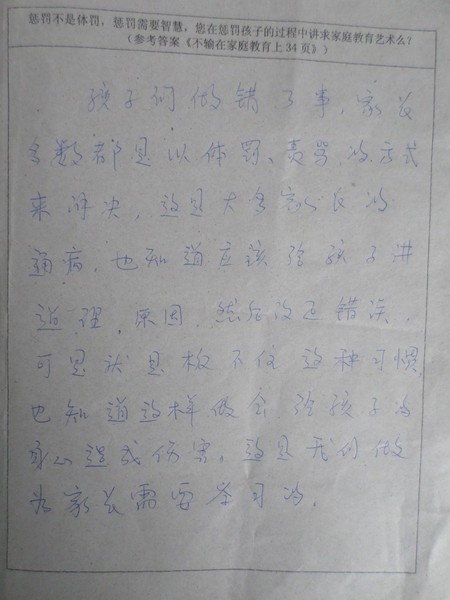 惩罚不是体罚，惩罚需要智慧，您在惩罚孩子的过程中讲求家庭教育艺术么？
（参考答案《不输在家庭教育上34页》）
孩子们做错了事，家长
多数都是以体罚、责骂的方式
来解决，这是大多家长的
通病，也知道应该给孩子讲
道理，原因，然后改正错误，
可是就是板不住这种习惯，
也知道这样做会给孩子的
身心造成伤害。这是我们做
为家长需要学习的。